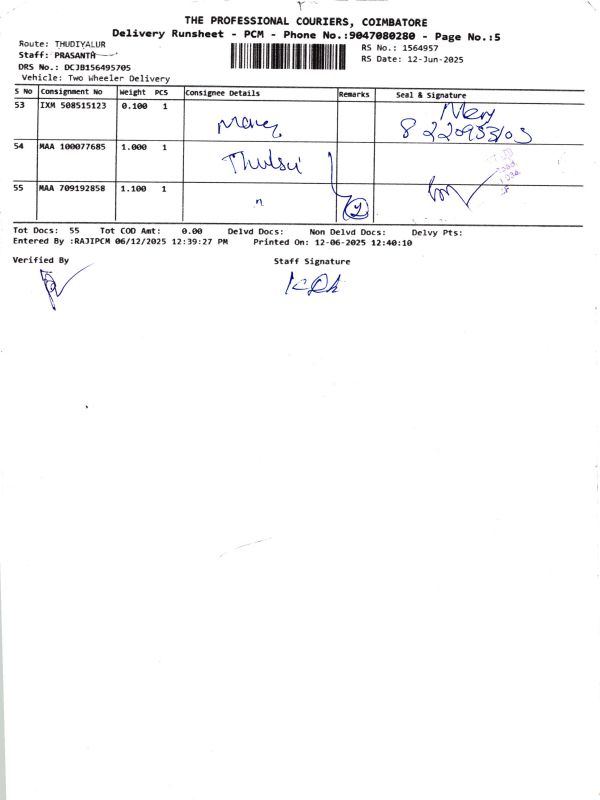 THE PROFESSIONAL COURIERS, COIMBATORE
Delivery Runsheet - PCM - Phone No.:9047080280 - Page No.:5
Route: THUDIYALUR
RS No.: 1564957
Staff: PRASANTH
RS Date: 12-Jun-2025
DRS No.: DCJB156495705
Vehicle: Two Wheeler Delivery
S No Consignment No Weight PCS Consignee Details Remarks Seal & Signature
53 IXM 508515123 0.100 1 Mary
54 MAA 100077685 1.000 1 Thulsi
55 MAA 709192858 1.100 1 " 2
Tot Docs: 55 Tot COD Amt: 0.00 Delvd Docs: Non Delvd Docs: Delvy Pts:
Entered By :RAJIPCM 06/12/2025 12:39:27 PM Printed On: 12-06-2025 12:40:10
Verified By Staff Signature